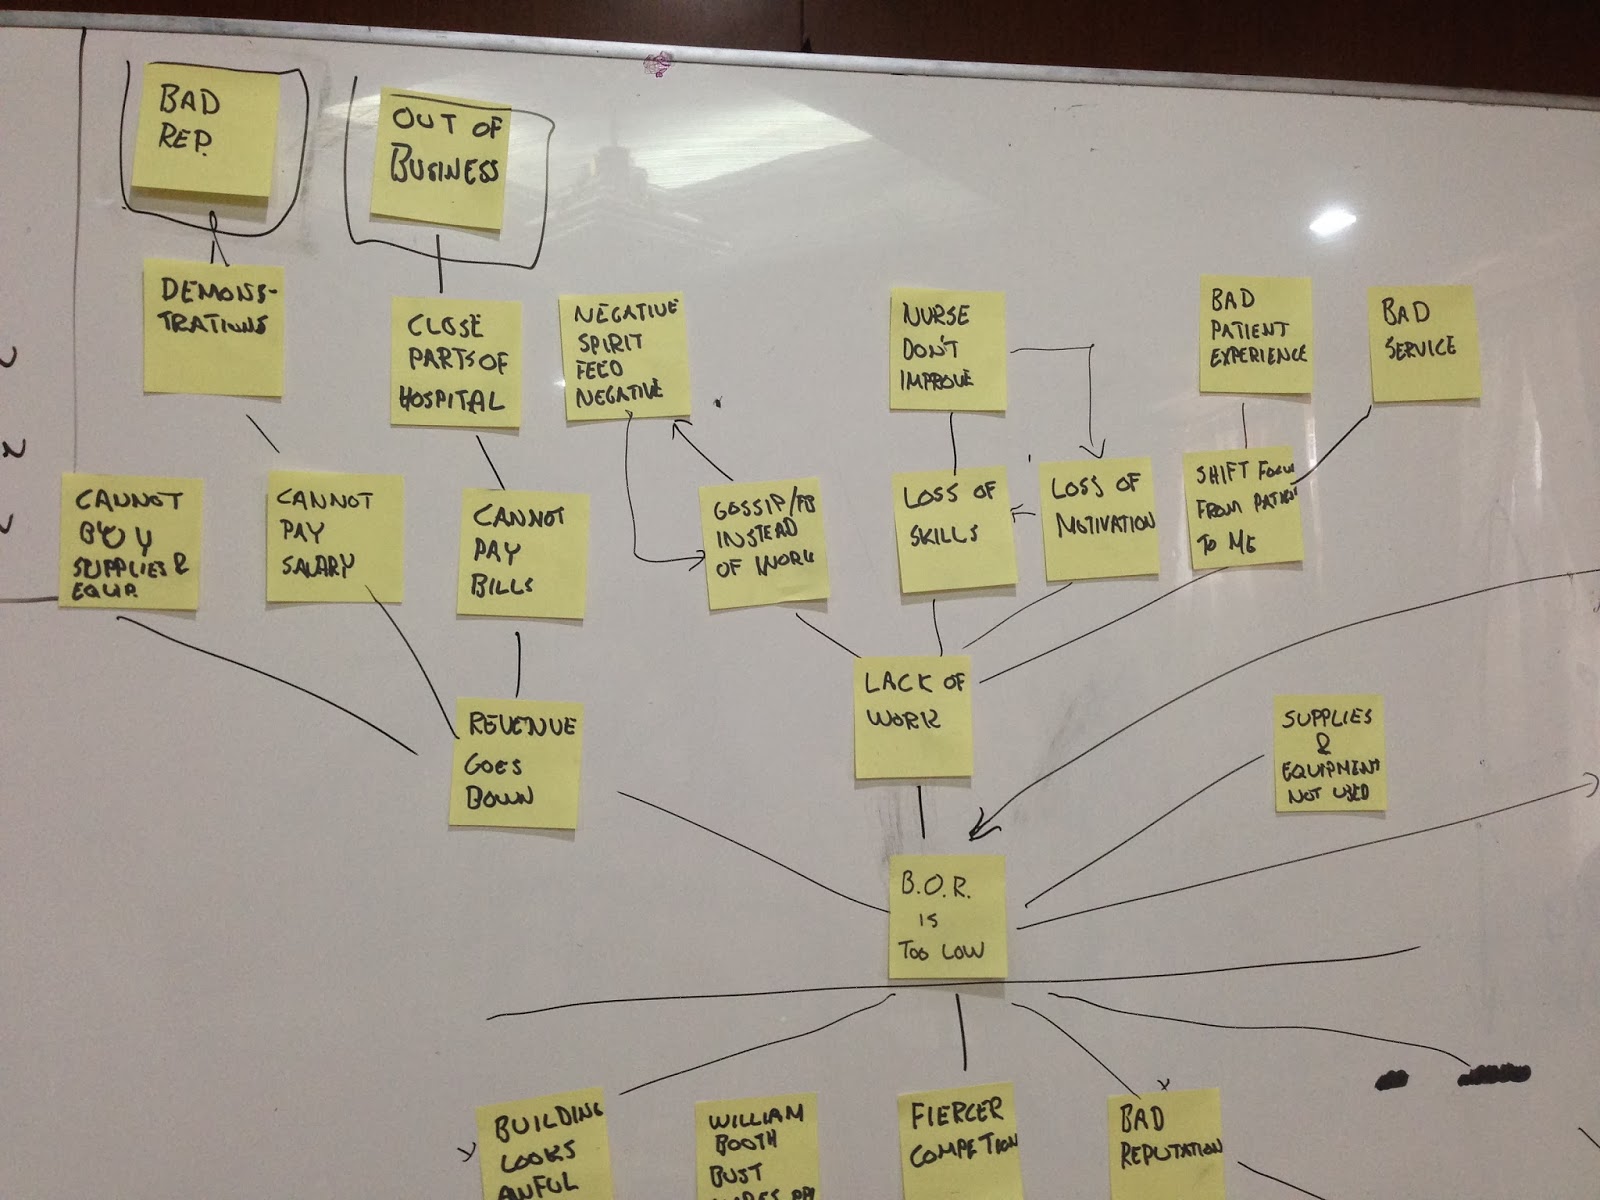 BAD
REP.
OUT OF
BUSINESS
DEMONS-
TRATIONS
CLOSE
PARTS OF
HOSPITAL
NEGATIVE
SPIRIT
FEED
NEGATIVE
NURSE
DON'T
IMPROVE
BAD
PATIENT
EXPERIENCE
BAD
SERVICE
CANNOT
BUY
SUPPLIES &
EQUIP.
CANNOT
PAY
SALARY
CANNOT
PAY
BILLS
GOSSIP/FB
INSTEAD
OF WORK
LOSS OF
SKILLS
LOSS OF
MOTIVATION
SHIFT FOCUS
FROM PATIENT
TO ME
REVENUE
GOES
DOWN
LACK OF
WORK
SUPPLIES
&
EQUIPMENT
NOT USED
B.O.R.
IS
TOO LOW
BUILDING
LOOKS
AWFUL
WILLIAM
BOOTH
BUST
FIERCER
COMPETION
BAD
REPUTATION